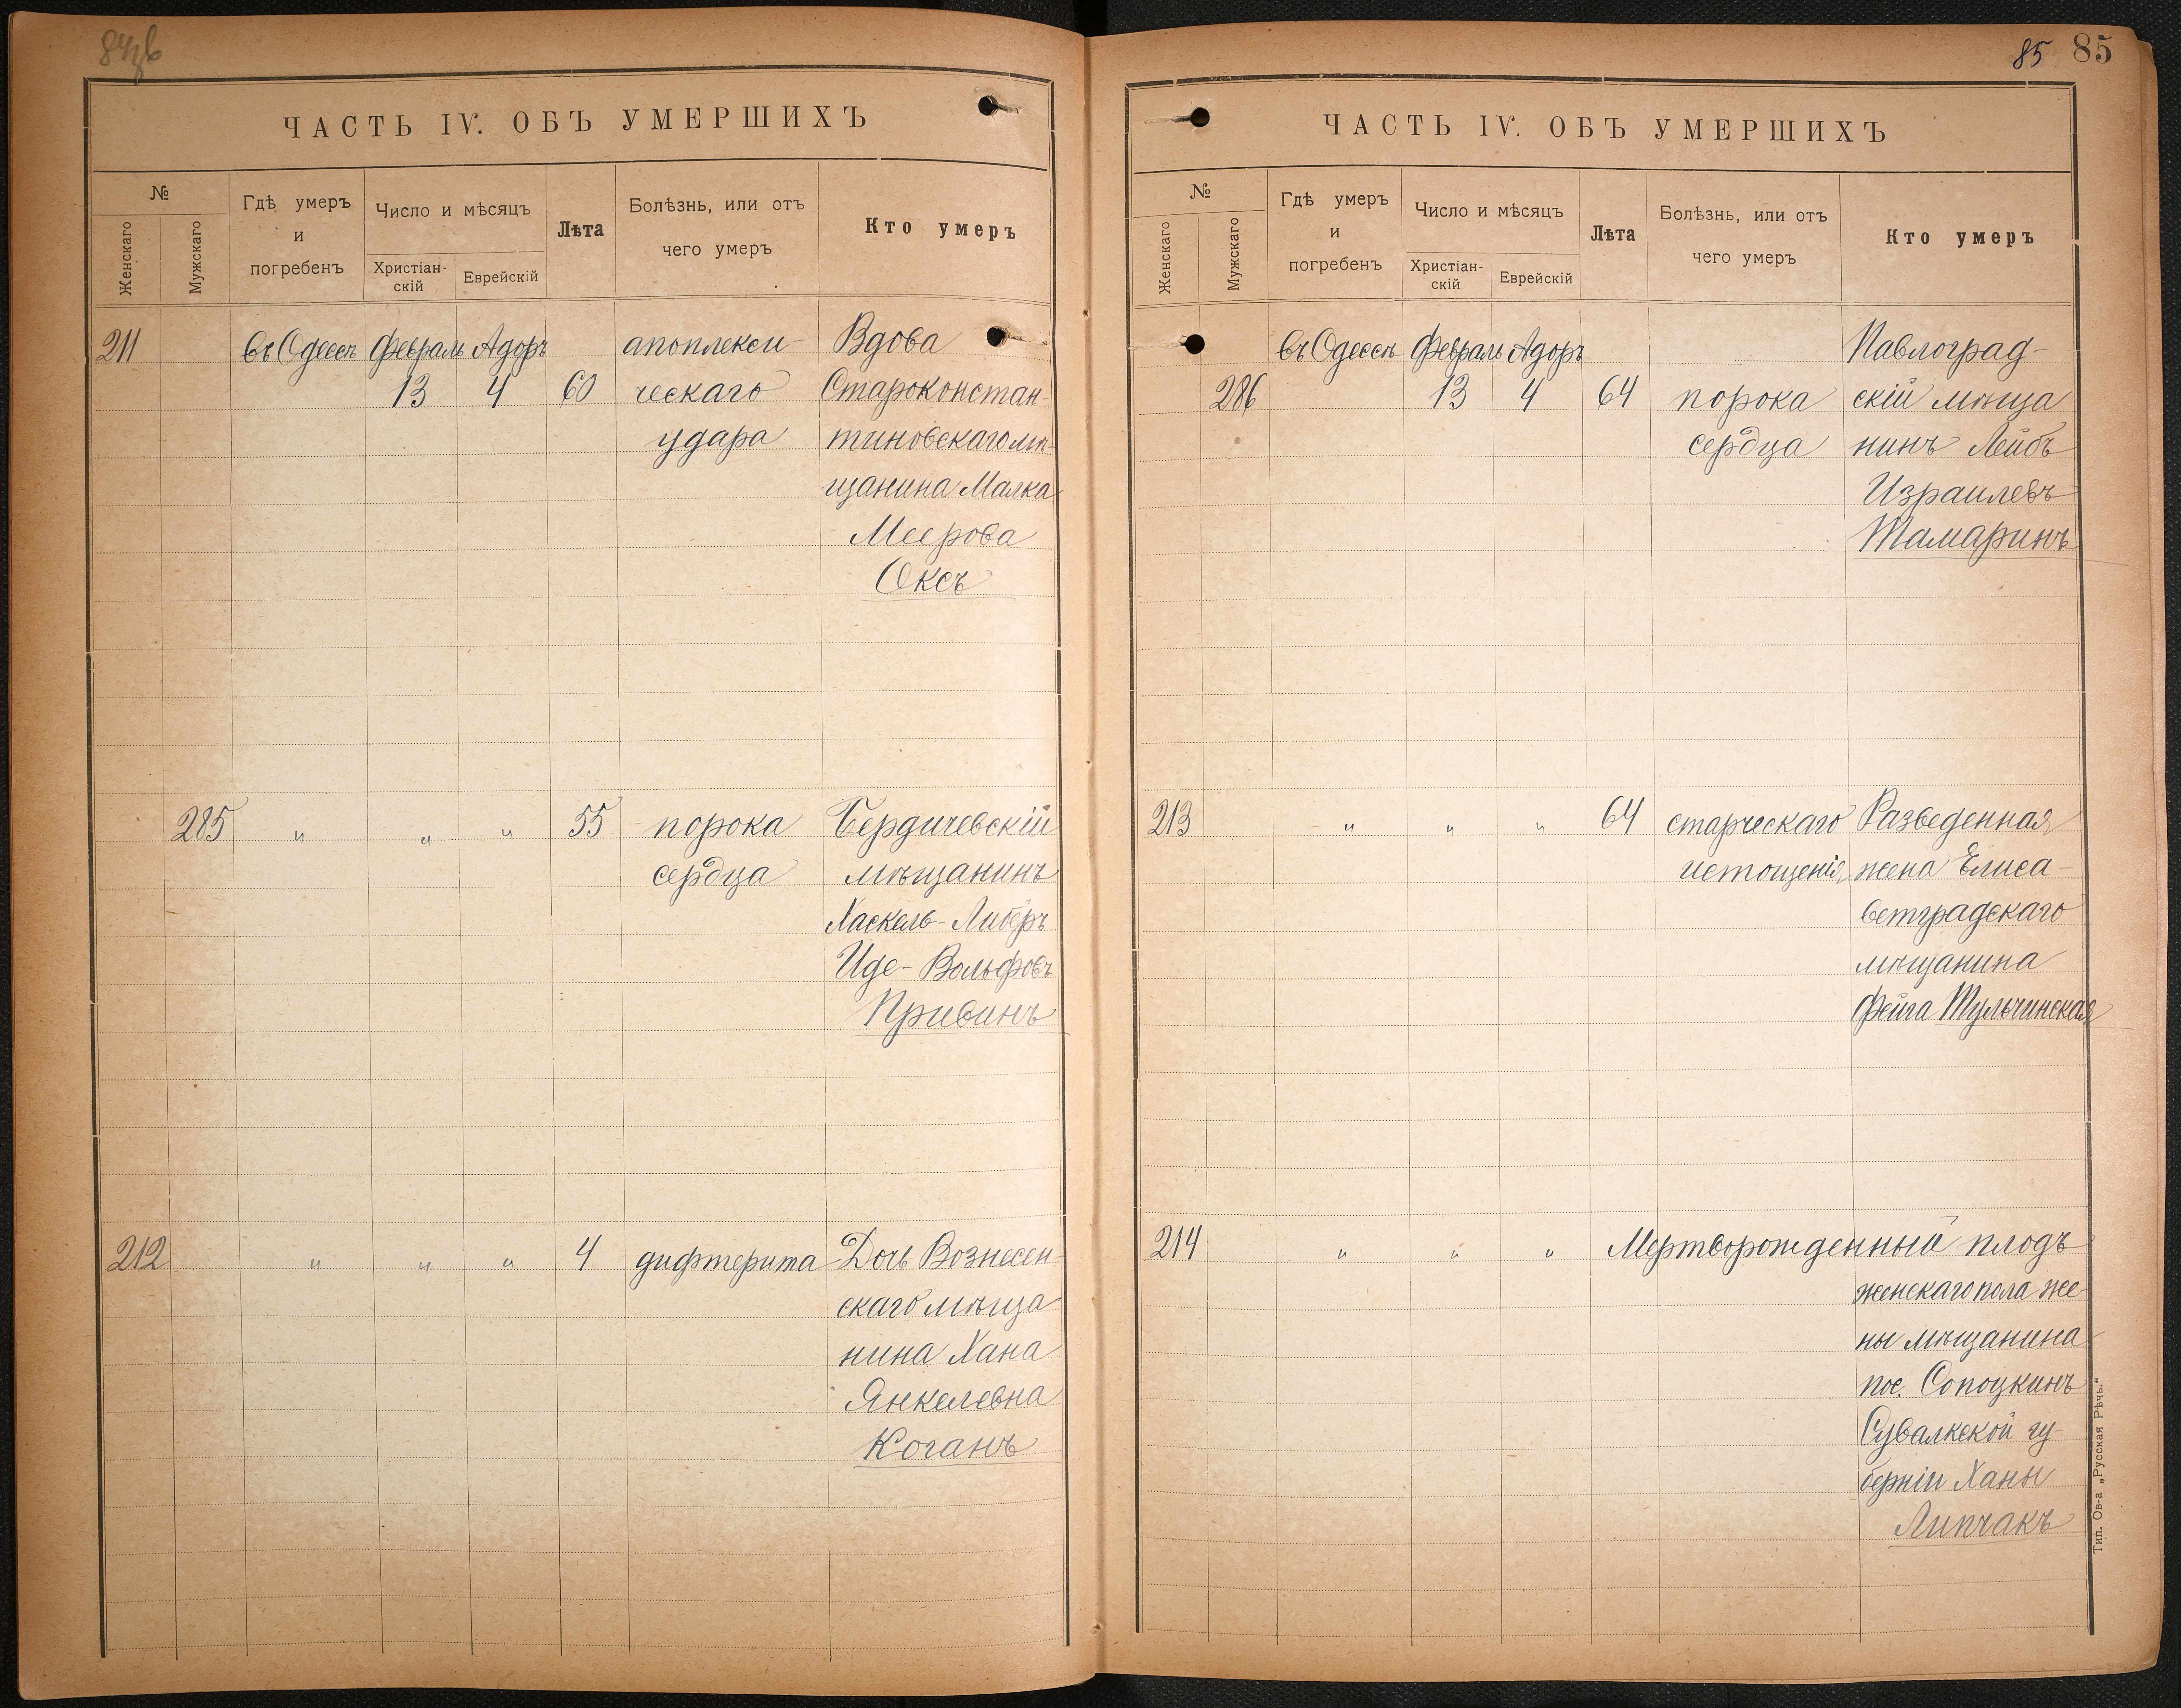 ЧАСТЬ IV. ОБЪ УМЕРШИХЪ
№
Женскаго
Мужскаго
Гдѣ умеръ
и
погребенъ
Число и мѣсяцъ
Христіан-
скій
Еврейскій
Лѣта
Болѣзнь, или отъ
чего умеръ
Кто умеръ
211 въ Одессѣ Февраль Адоръ апоплекси- Вдова
13 4 60 ческаго Староконстан-
удара тиновскаго мѣ-
щанина Малка
Меерова
Оксъ
285 " " " 55 порока Бердичевскій
сердца мѣщанинъ
Хаскель-Либеръ
Иде-Вольфовъ
Привинъ
212 " " " 4 дифтерита Дочь Вознесен-
скаго мѣща-
нина Хана
Янкелевна
Коганъ
85 85
ЧАСТЬ IV. ОБЪ УМЕРШИХЪ
№
Женскаго
Мужскаго
Гдѣ умеръ
и
погребенъ
Число и мѣсяцъ
Христіан-
скій
Еврейскій
Лѣта
Болѣзнь, или отъ
чего умеръ
Кто умеръ
въ Одессѣ Февраль Адоръ Павлоград-
286 13 4 64 порока скій мѣща
сердца нинъ Лейбъ
Израилевъ
Тамаринъ
213 " " " 64 старческаго Разведенная
истощенія жена Елиса-
ветградскаго
мѣщанина
Фейга Тульчинская
214 " " " Мертворожденный плодъ
женскаго пола же-
ны мѣщанина
пос. Сопоцкинъ
Сувалкской гу-
берніи Ханы
Липчакъ
Тип. Ов-а „Русская Рѣчь.“